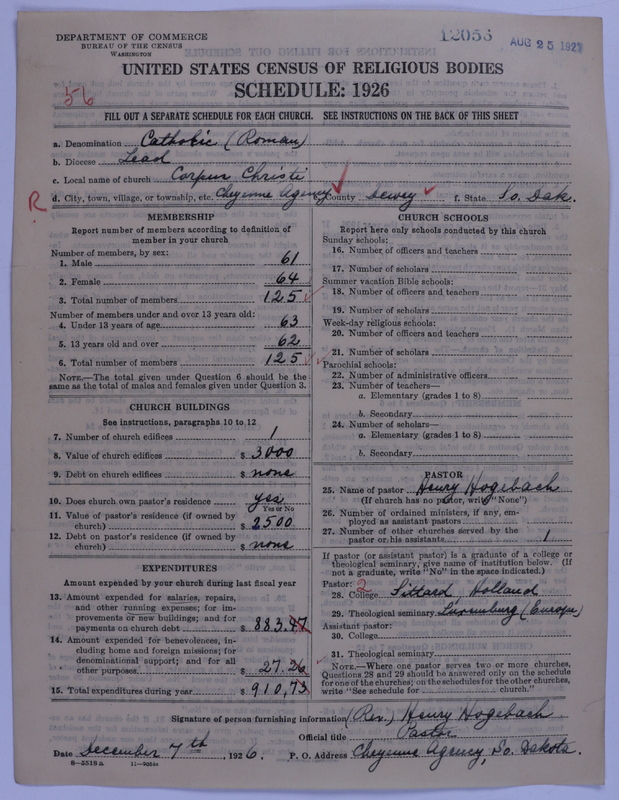 DEPARTMENT OF COMMERCE
BUREAU OF THE CENSUS
WASHINGTON
12053
AUG 25 1927
UNITED STATES CENSUS OF RELIGIOUS BODIES
SCHEDULE: 1926
56
FILL OUT A SEPARATE SCHEDULE FOR EACH CHURCH. SEE INSTRUCTIONS ON THE BACK OF THIS SHEET
a. Denomination Catholic (Roman)
b. Diocese Lead
c. Local name of church Corpus Christi
R d. City, town, village, or township, etc. Cheyenne Agency e. County Dewey f. State So. Dak.
MEMBERSHIP
Report number of members according to definition of
member in your church
Number of members, by sex:
1. Male 61
2. Female 64
3. Total number of members 125
Number of members under and over 13 years old:
4. Under 13 years of age 63
5. 13 years old and over 62
6. Total number of members 125
NOTE.—The total given under Question 6 should be the
same as the total of males and females given under Question 3.
CHURCH BUILDINGS
See instructions, paragraphs 10 to 12
7. Number of church edifices 1
8. Value of church edifices $ 3000
9. Debt on church edifices $ none
10. Does church own pastor's residence yes
Yes or No
11. Value of pastor's residence (if owned by
church) $ 2500
12. Debt on pastor's residence (if owned by
church) $ none
EXPENDITURES
Amount expended by your church during last fiscal year
13. Amount expended for salaries, repairs,
and other running expenses; for im-
provements or new buildings; and for
payments on church debt $ 883.47
14. Amount expended for benevolences, in-
cluding home and foreign missions; for
denominational support; and for all
other purposes $ 27.26
15. Total expenditures during year $ 910,73
CHURCH SCHOOLS
Report here only schools conducted by this church
Sunday schools:
16. Number of officers and teachers
17. Number of scholars
Summer vacation Bible schools:
18. Number of officers and teachers
19. Number of scholars
Week-day religious schools:
20. Number of officers and teachers
21. Number of scholars
Parochial schools:
22. Number of administrative officers
23. Number of teachers—
a. Elementary (grades 1 to 8)
b. Secondary
24. Number of scholars—
a. Elementary (grades 1 to 8)
b. Secondary
PASTOR
25. Name of pastor Henry Hogebach
(If church has no pastor, write "None")
26. Number of ordained ministers, if any, em-
ployed as assistant pastors
27. Number of other churches served by the
pastor or his assistants 1
If pastor (or assistant pastor) is a graduate of a college or
theological seminary, give name of institution below. (If
not a graduate, write "No" in the space indicated.)
Pastor: 2
28. College Sittard Holland
29. Theological seminary Luxemburg (Europe)
Assistant pastor:
30. College
31. Theological seminary
NOTE.—Where one pastor serves two or more churches,
Questions 28 and 29 should be answered only on the schedule
for one of the churches; on the schedules for the other churches,
write "See schedule for church."
Signature of person furnishing information (Rev.) Henry Hogebach
Official title Pastor
Date December 7th, 1926. P. O. Address Cheyenne Agency, So. Dakota.
8—5518a